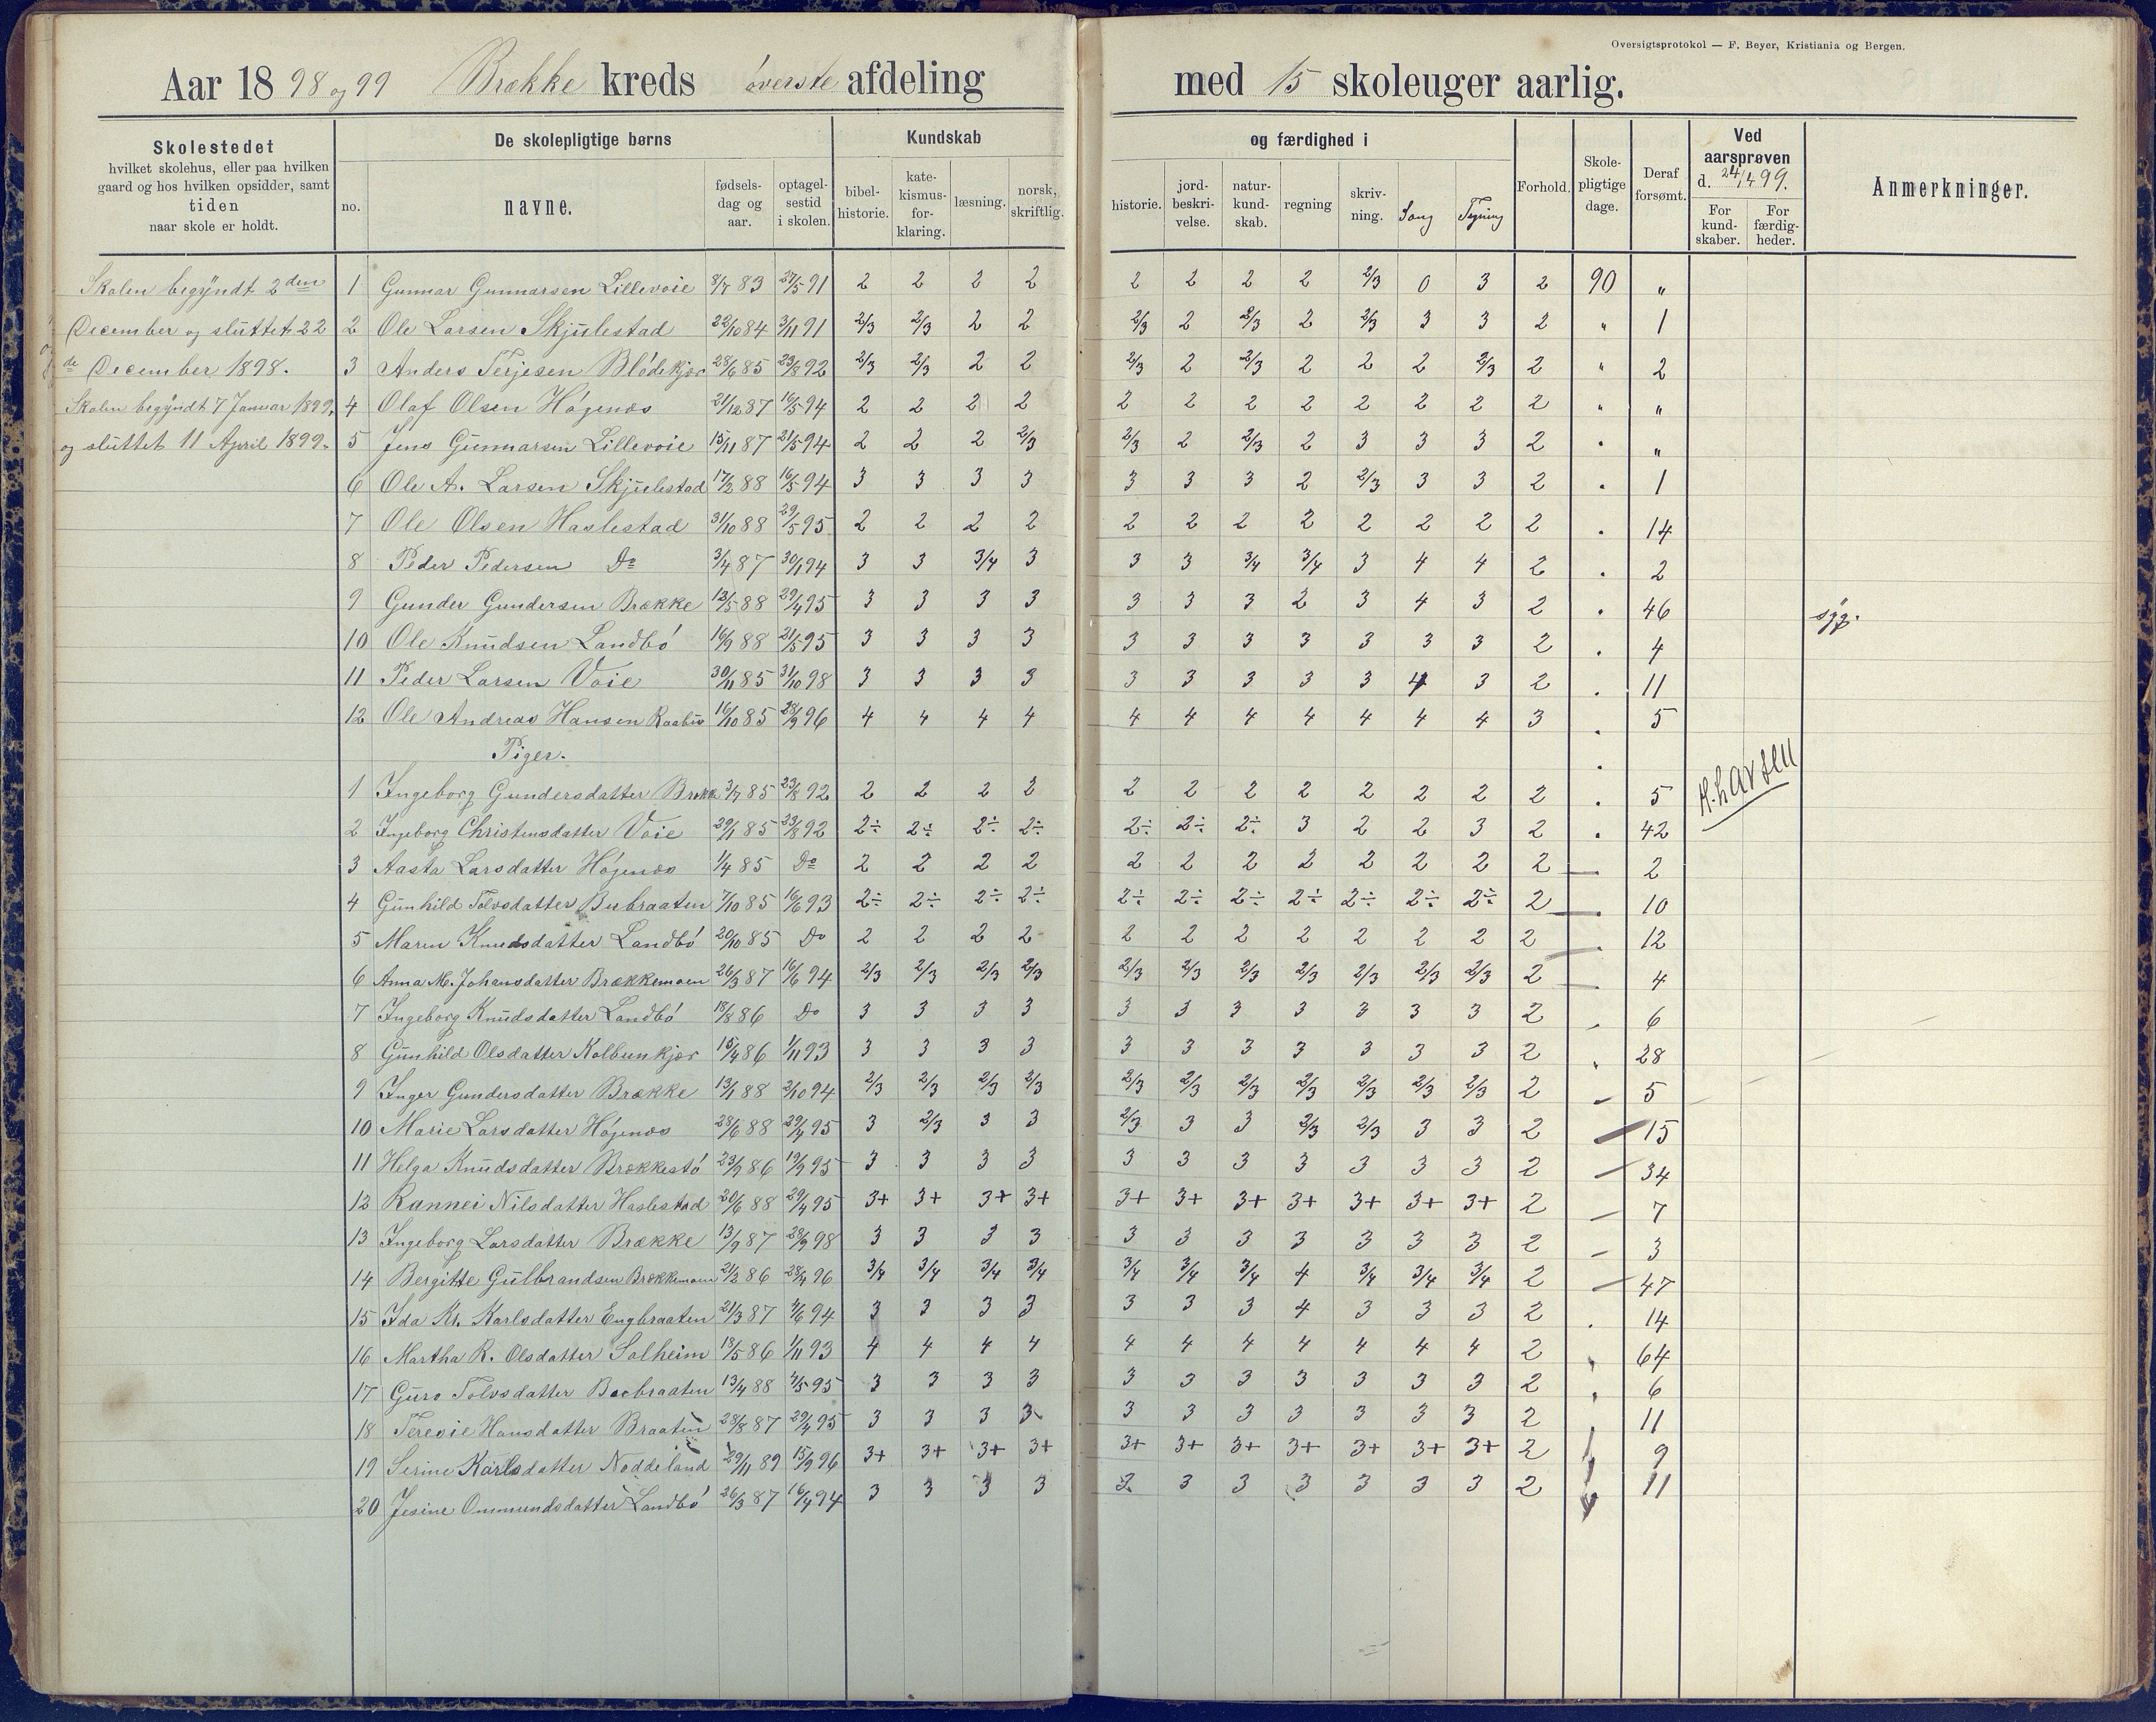 Oversigtsprotokol — F. Beyer, Kristiania og Bergen.
Aar 1898 og 99 Brække kreds øverste afdeling med 15 skoleuger aarlig.
Skolestedet hvilket skolehus, eller paa hvilken gaard og hos hvilken opsidder, samt tiden naar skole er holdt.
De skolepligtige børns
no. navne. fødselsdag og aar. optagelsestid i skolen.
Kundskab og færdighed i
bibelhistorie. katekismusforklaring. læsning. norsk, skriftlig. historie. jordbeskrivelse. naturkundskab. regning skrivning. Sang Tegning
Forhold. Skolepligtige dage. Deraf forsømt.
Ved aarsprøven d. 24/4 99.
For kundskaber. For færdigheder.
Anmerkninger.
Skolen begyndt 2den
December og sluttet 22
de December 1898.
Skolen begyndt 7 Januar 1899,
og sluttet 11 April 1899.
1 Gunnar Gunnarsen Lillevoie 8/7 83 27/5 91 2 2 2 2 2 2 2 2 2/3 0 3 2 90 "
2 Ole Larsen Skjulestad 22/10 84 3/11 91 2/3 2/3 2 2 2/3 2 2/3 2 2/3 3 3 2 " 1
3 Anders Terjesen Blødekjær 28/6 85 23/8 92 2/3 2/3 2 2 2/3 2 2/3 2 2 2 2/3 2 " 2
4 Olaf Olsen Høgenæs 21/12 87 16/5 94 2 2 2 2 2 2 2 2 2 2 2 2 " "
5 Jens Gunnarsen Lillevoie 15/11 87 21/5 94 2 2 2 2/3 2/3 2 2/3 2 3 3 3 2 " "
6 Ole A. Larsen Skjulestad 17/2 88 16/5 94 3 3 3 3 3 3 3 2 2/3 3 3 2 " 1
7 Ole Olsen Haslestad 31/10 88 29/5 95 2 2 2 2 2 2 2 2 2 2 2 2 " 14
8 Peder Pedersen Do 3/4 87 30/1 94 3 3 3/4 3 3 3 3/4 3/4 3 4 4 2 " 2
9 Gunder Gundersen Brække 12/5 88 29/4 95 3 3 3 3 3 3 3 2 3 4 3 2 " 46 syg.
10 Ole Knudsen Landbø 16/9 88 21/5 95 3 3 3 3 3 3 3 3 3 3 3 2 " 4
11 Peder Larsen Voie 30/11 85 31/10 98 3 3 3 3 3 3 3 3 3 4 3 2 " 11
12 Ole Andreas Hansen 16/10 85 28/9 96 4 4 4 4 4 4 4 4 4 4 4 3 " 5
Piger.
1 Ingeborg Gundersdatter Brække 3/7 85 23/8 92 2 2 2 2 2 2 2 2 2 2 2 2 " 5 H. Larsen
2 Ingeborg Christensdatter Voie 29/1 85 23/8 92 2÷ 2÷ 2÷ 2÷ 2÷ 2÷ 2÷ 3 2 2 3 2 " 42
3 Aasta Larsdatter Høgenæs 1/4 85 Do 2 2 2 2 2 2 2 2 2 2 2 2 " 2
4 Gunhild Tolvsdatter Bubraaten 7/10 85 16/6 93 2÷ 2÷ 2÷ 2÷ 2÷ 2÷ 2÷ 2÷ 2÷ 2÷ 2÷ 2 " 10
5 Maren Knudsdatter Landbø 20/10 85 Do 2 2 2 2 2 2 2 2 2 2 2 2 " 12
6 Anna M. Johansdatter Brækkemoen 26/3 87 16/6 94 2/3 2/3 2/3 2/3 2/3 2/3 2/3 2/3 2/3 2/3 2/3 2 4
7 Ingeborg Knudsdatter Landbø 18/8 86 Do 3 3 3 3 3 3 3 3 3 3 3 2 " 6
8 Gunhild Olsdatter Kolbunkjær 15/4 86 1/11 93 3 3 3 3 3 3 3 3 3 3 3 2 " 28
9 Inger Gundersdatter Brække 13/1 88 2/10 94 2/3 2/3 2/3 2/3 2/3 2/3 2/3 2/3 2/3 2/3 2/3 2 " 5
10 Marie Larsdatter Høgenæs 28/6 88 29/4 95 3 2/3 3 3 2/3 3 3 2/3 2/3 3 3 2 " 15
11 Helga Knudsdatter Brækkestø 23/9 86 19/9 95 3 3 3 3 3 3 3 3 3 3 3 2 " 34
12 Rannei Nilsdatter Haslestad 20/6 88 29/4 95 3+ 3+ 3+ 3+ 3+ 3+ 3+ 3+ 3+ 3+ 3+ 2 " 7
13 Ingeborg Larsdatter Brække 13/9 87 28/9 98 3 3 3 3 3 3 3 3 3 3 3 2 " 3
14 Bergitte Gulbrandsen Brækkemoen 21/2 86 28/4 96 3/4 3/4 3/4 3/4 3/4 3/4 3/4 4 3/4 3/4 3/4 2 " 47
15 Ida Kr. Karlsdatter Engbraaten 21/3 87 4/6 94 3 3 3 3 3 3 3 4 3 3 3 2 " 14
16 Martha R. Olsdatter Solheim 18/5 86 1/11 93 4 4 4 4 4 4 4 4 4 4 4 2 " 64
17 Guro Tolvsdatter Boebraaten 13/4 88 4/5 95 3 3 3 3 3 3 3 3 3 3 3 2 " 6
18 Teresie Hansdatter Braaten 28/8 87 29/4 95 3 3 3 3 3 3 3 3 3 3 3 2 " 11
19 Serine Karlsdatter Noddeland 29/11 89 15/9 96 3+ 3+ 3+ 3+ 3+ 3+ 3+ 3+ 3+ 3+ 3+ 2 9
20 Jesine Ommundsdatter Landbø 26/3 87 16/4 94 3 3 3 3 3 3 3 3 3 3 3 2 11